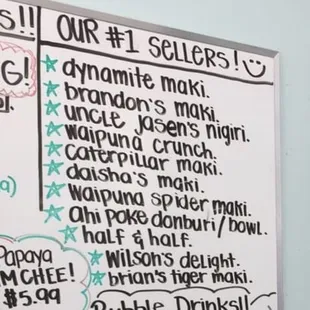 S!!
OUR #1 SELLERS!
G!
dynamite maki.
brandon's maki.
uncle jasen's nigiri.
waipuna crunch.
caterpillar maki.
daisha's maki.
Waipuna spider maki.
ahi poke donburi/bowl.
half & half.
Wilson's delight.
brian's tiger maki.
Papaya
M CHEE!
$5.99
Bubble Drinks!!